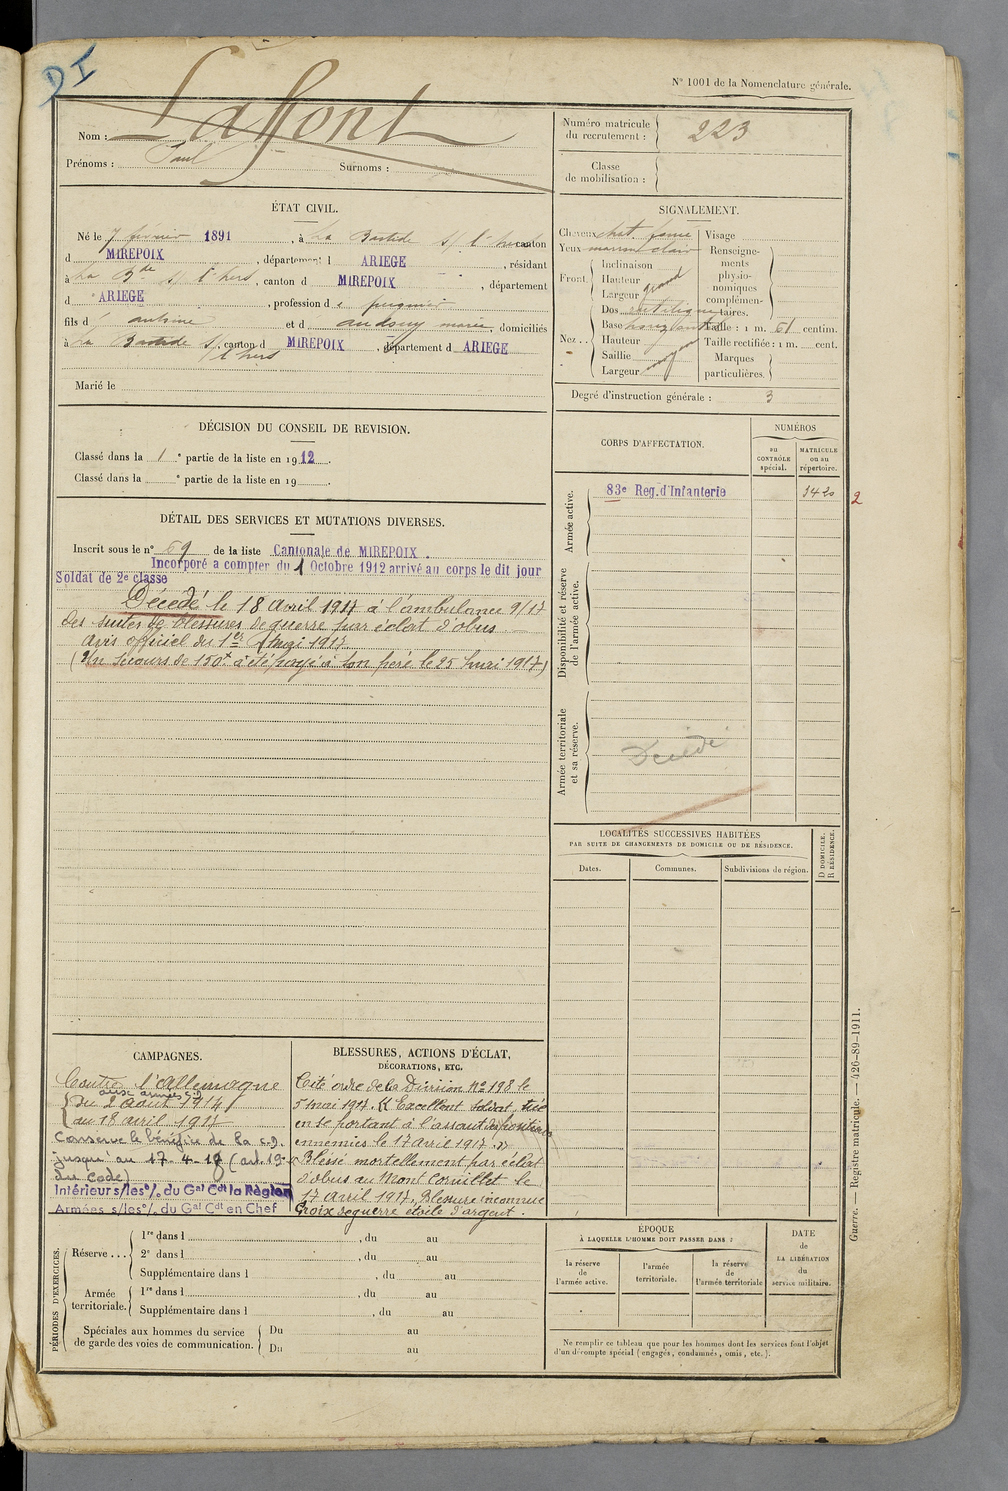 DI
N° 1001 de la Nomenclature générale.
Nom : Laffont
Prénoms : Paul Surnoms :
Numéro matricule du recrutement : 223
Classe de mobilisation :
ÉTAT CIVIL.
Né le 7 février 1891, à La Bastide s/ l'hers canton
d MIREPOIX, département d ARIEGE, résidant
à La Bde s/ l'hers, canton d MIREPOIX, département
d ARIEGE, profession d e peignier
fils d antoine et d audouy marie, domiciliés
à La Bastide s/ l'hers canton d MIREPOIX, département d ARIEGE
Marié le
SIGNALEMENT.
Cheveux chat. foncé Visage
Yeux marron clair Renseigne-
ments
physio-
nomiques
complémen-
taires.
Front Inclinaison
Hauteur
Largeur grand
Nez.. Dos rectiligne
Base horizontale Taille : 1 m. 61 centim.
Hauteur Taille rectifiée : 1 m. cent.
Saillie Marques
Largeur moyen particulières.
Degré d'instruction générale : 3
DÉCISION DU CONSEIL DE REVISION.
Classé dans la 1e partie de la liste en 1912.
Classé dans la e partie de la liste en 19 .
CORPS D'AFFECTATION.
NUMÉROS
au CONTRÔLE spécial.
MATRICULE ou au répertoire.
Armée active.
83e Reg. d'Infanterie 3420 2
Disponibilité et réserve de l'armée active.
Armée territoriale et sa réserve.
Décédé
DÉTAIL DES SERVICES ET MUTATIONS DIVERSES.
Inscrit sous le n° 69 de la liste Cantonale de MIREPOIX.
Incorporé a compter du 1 Octobre 1912 arrivé au corps le dit jour
Soldat de 2e classe
Décédé le 18 avril 1917 à l'ambulance 9/17
des suites de blessures de guerre par éclat d'obus
avis officiel du 1er mai 1917.
(Un secours de 150f a été payé à son père le 25 mai 1917)
LOCALITÉS SUCCESSIVES HABITÉES
PAR SUITE DE CHANGEMENTS DE DOMICILE OU DE RÉSIDENCE.
Dates. Communes. Subdivisions de région. D DOMICILE. R RÉSIDENCE.
CAMPAGNES.
Contre l'Allemagne
aux armées
du 2 août 1914
au 18 avril 1917
Conserve le bénéfice de la c.D.
jusqu'au 17-4-18 (art. 19
du Code)
Intérieur s/les o/. du Gal Cdt la Région
Armées s/les o/. du Gal Cdt en Chef
BLESSURES, ACTIONS D'ÉCLAT,
DÉCORATIONS, ETC.
Cité ordre de la Division n° 198 le
5 mai 1917. « Excellent soldat, tué
en se portant à l'assaut des positions
ennemies le 17 avril 1917. »
Blessé mortellement par éclat
d'obus au Mont Cornillet le
17 avril 1917. Blessure inconnue
Croix de guerre étoile d'argent.
PÉRIODES D'EXERCICES.
Réserve ... 1re dans l , du au
2e dans l , du au
Supplémentaire dans l , du au
Armée territoriale. 1re dans l , du au
Supplémentaire dans l , du au
Spéciales aux hommes du service de garde des voies de communication. Du au
Du au
ÉPOQUE
À LAQUELLE L'HOMME DOIT PASSER DANS :
la réserve de l'armée active.
l'armée territoriale.
la réserve de l'armée territoriale
DATE de LA LIBÉRATION du service militaire.
Ne remplir ce tableau que pour les hommes dont les services font l'objet
d'un décompte spécial (engagés, condamnés, omis, etc.).
Guerre. — Registre matricule. — 426-89-1911.